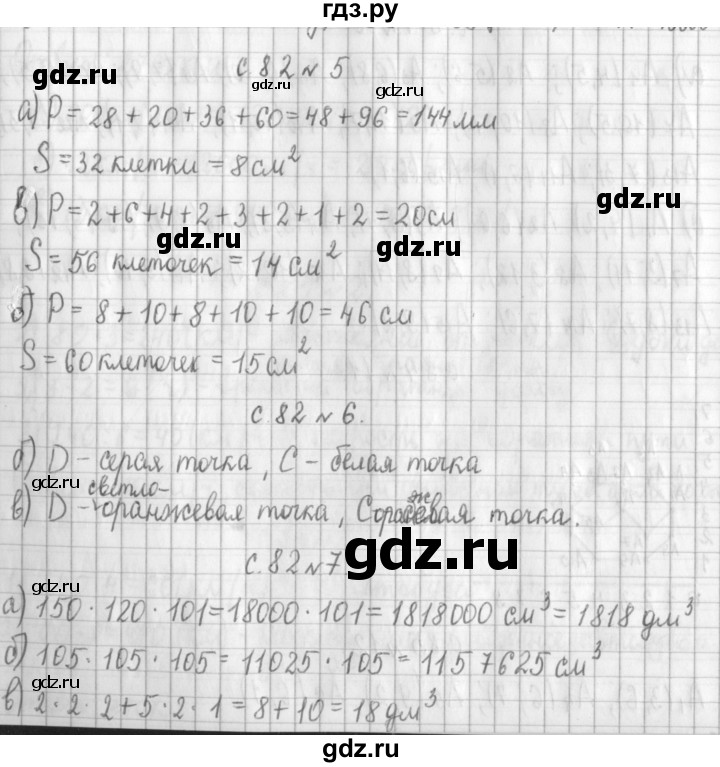 гдз.ру
с. 82 № 5
gdz.ru gdz.ru
а) P = 28 + 20 + 36 + 60 = 48 + 96 = 144 мм
S = 32 клетки = 8 см²
gdz.ru
в) P = 2 + 6 + 4 + 2 + 3 + 2 + 1 + 2 = 20 см
gdz.ru gdz.ru
S = 56 клеточек = 14 см²
б) P = 8 + 10 + 8 + 10 + 10 = 46 см
S = 60 клеточек = 15 см²
с. 82 № 6.
б) D – серая точка, C – белая точка
gdz.ru
в) D – светло-оранжевая точка, C оражевая точка.
gdz.ru
с. 82 № 7
gdz.ru
а) 150 · 120 · 101 = 18000 · 101 = 1818000 см³ = 1818 дм³
б) 105 · 105 · 105 = 11025 · 105 = 1157625 см³
gdz.ru
в) 2 · 2 · 2 + 5 · 2 · 1 = 8 + 10 = 18 дм³
gdz.ru